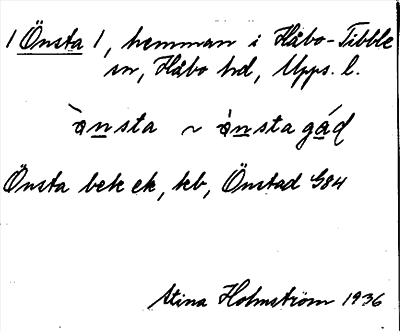 1 Önsta 1, hemman i Håbo-Tibble
sn, Håbo hd, Upps. l.
ὰnsta ~ ὰnstagád
Önsta bek ek, kb, Önstad G84
Stina Holmström 1936